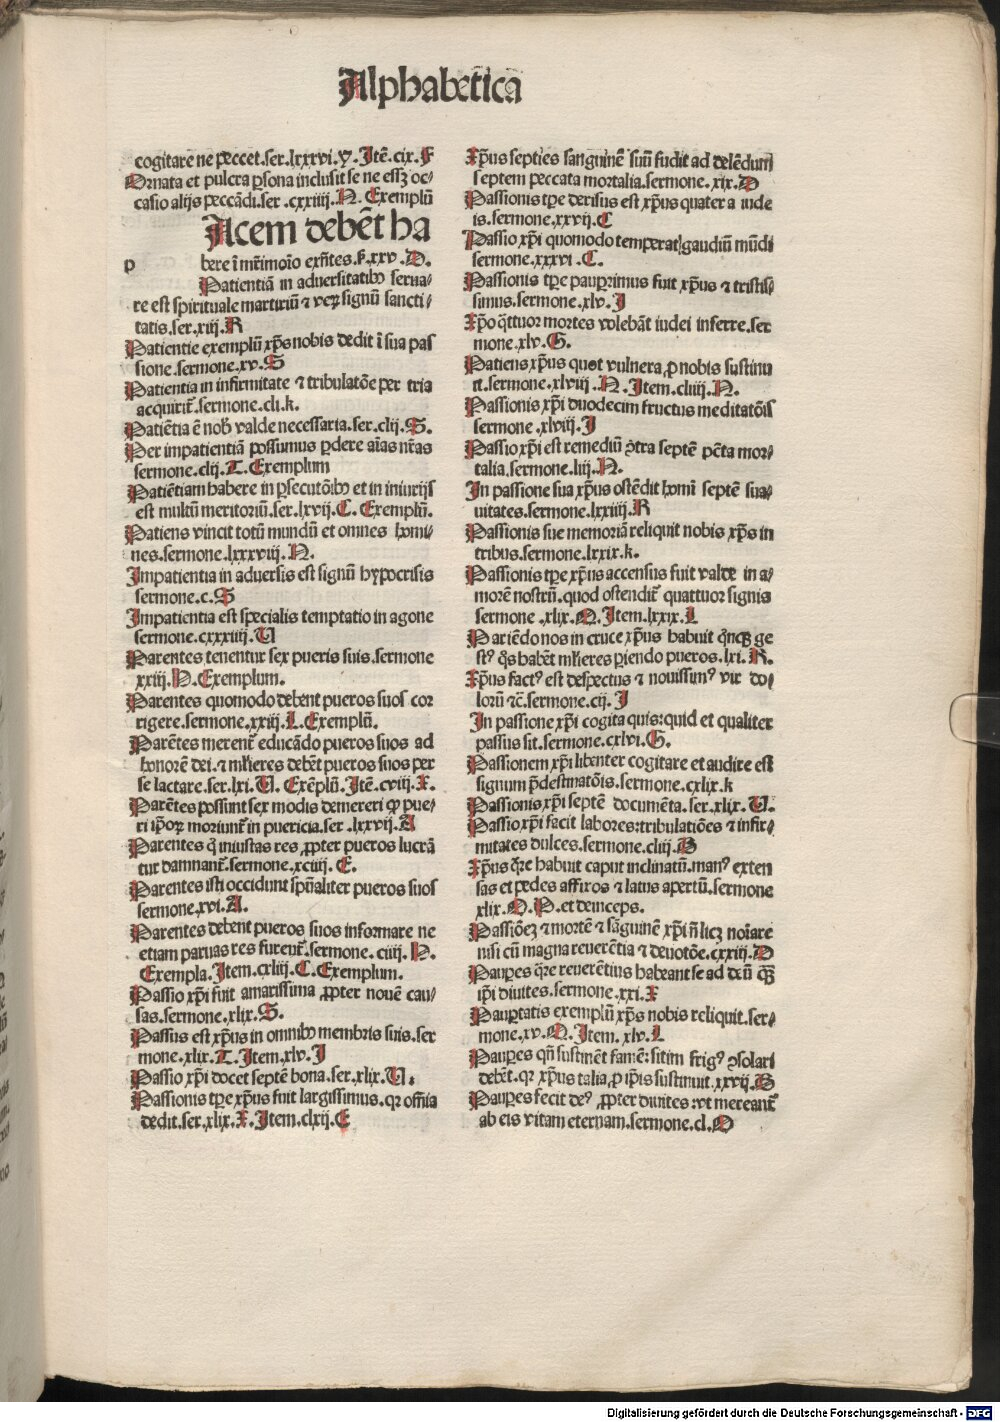 Alphabetica
cogitare ne peccet.ser.lxxxvi.Y.Itē.cix.F
Ornata et pulcra p̄sona inclusit se ne essꝫ oc⸗
casio alijs peccādi.ser.cxxiiij.N.Exemplū
Acem debēt ha
p bere ī mr̄imoīo exn̄tes.k.xxv.D.
Patientiā in aduersitatibꝰ serua⸗
re est spirituale martiriū ⁊ veꝝ signū sancti⸗
tatis.ser.xiij.R
Patientie exemplū xp̄s nobis dedit ī sua pas
sione.sermone.xv.S
Patientia in infirmitate ⁊ tribulatōe per tria
acquirit̄.sermone.cli.k.
Patiētia ē nob̄ valde necessaria.ser.clij.S.
Per impatientiā possumus p̄dere aīas nr̄as
sermone.clij.T.Exemplum
Patiētiam habere in p̄secutōībꝰ et in iniurijs
est multū meritoriū.ser.lxvij.C.Exemplū.
Patiens vincit totū mundū et omnes homi⸗
nes.sermone.lxxxviij.N.
Impatientia in aduersis est signū hypocrisis
sermone.c.S
Impatientia est specialis temptatio in agone
sermone.cxxxiiij.U
Parentes tenentur sex pueris suis.sermone
xxiij.N.Exemplum.
Parentes quomodo debent pueros suos cor
rigere.sermone.xxiij.L.Exemplū.
Parētes merent̄ educādo pueros suos ad
honorē dei.⁊ mlieres debēt pueros suos per
se lactare.ser.lxi.U.Exēplū.Itē.cviij.X.
Parētes possunt sex modis demereri ꝙ pue⸗
ri ip̄oꝝ moriunt̄ in puericia.ser.lxxvij.A
Parentes q̄ iniustas res ꝓpter pueros lucrā
tur damnant̄.sermone.xciiij.E.
Parentes isti occidunt sp̄ualiter pueros suos
sermone.xvi.A.
Parentes debent pueros suos informare ne
etiam paruas res furent̄.sermone.ciiij.N.
Exempla.Item.cxliij.C.Exemplum.
Passio xp̄i fuit amarissima ꝓpter nouē cau⸗
sas.sermone.xlix.S.
Passus est xp̄us in omnibꝰ membris suis.ser
mone.xlix.T.Item.xlv.I
Passio xp̄i docet septē bona.ser.xlix.U.
Passionis tp̄e xp̄us fuit largissimus.qr om̄ia
dedit.ser.xlix.X.Item.clxij.E
Xp̄us septies sanguinē suū fudit ad delēdum
septem peccata mortalia.sermone.xix.D
Passionis tp̄e derisus est xp̄us quater a iude
is.sermone.xxvij.C
Passio xp̄i quomodo temperat gaudiū mūdi
sermone.xxxvi.C.
Passionis tp̄e paup̄rimus fuit xp̄us ⁊ tristis⸗
simus.sermone.xlv.I
Xp̄o q̄ttuor mortes volebāt iudei inferre.ser
mone.xlv.G.
Patiens xp̄us quot vulnera ꝓ nobis sustinu
it.sermone.xlviij.N.Item.cliij.N.
Passionis xp̄i duodecim fructus meditatōis
sermone.xlviij.I
Passio xp̄i est remediū ꝯtra septē pc̄ta mor⸗
talia.sermone.liij.N.
In passione sua xp̄us ostēdit homī septē sua⸗
uitates.sermone.lxxiiij.R
Passionis sue memoriā reliquit nobis xp̄s in
tribus.sermone.lxxix.k.
Passionis tp̄e xp̄us accensus fuit valde in a⸗
morē nostrū.quod ostendit̄ quattuor signis
sermone.xlix.O.Item.lxxix.L
Pariēdo nos in cruce xp̄us habuit q̄nqꝫ ge
stꝰ q̄s habēt mlieres p̄iendo pueros.lxi.R.
Xp̄us factꝰ est despectus ⁊ nouissimꝰ vir do⸗
lorū ⁊c̄.sermone.cij.I
In passione xp̄i cogita quis:quid et qualiter
passus sit.sermone.cxlvi.G.
Passionem xp̄i libenter cogitare et audire est
signum p̄destinatōis.sermone.cxlix.k
Passionis xp̄i septē documēta.ser.xlix.U.
Passio xp̄i facit labores:tribulatiōes ⁊ infir⸗
mitates dulces.sermone.cliij.B
Xp̄us q̄re habuit caput inclinatū.manꝰ exten
sas et pedes affixos ⁊ latus apertū.sermone
xlix.O.P.et deinceps.
Passiōeꝫ ⁊ mortē ⁊ sāguinē xp̄i n̄ licꝫ noīare
nisi cū magna reuerētia ⁊ deuotōe.cxxiij.D
Paup̄es q̄re reuerētius habeant se ad deū q̄ꝫ
ip̄i diuites.sermone.xxi.X
Paup̄tatis exemplū xp̄s nobis reliquit.ser⸗
mone.xv.O.Item.xlv.L
Paup̄es qn̄ sustinēt famē:sitim frigꝰ ꝯsolari
debēt.qr xp̄us talia ꝓ ip̄is sustinuit.xxvij.B
Paup̄es fecit deꝰ ꝓpter diuites:vt mereant̄
ab eis vitam eternam.sermone.cl.O
Digitalisierung gefördert durch die Deutsche Forschungsgemeinschaft - DFG